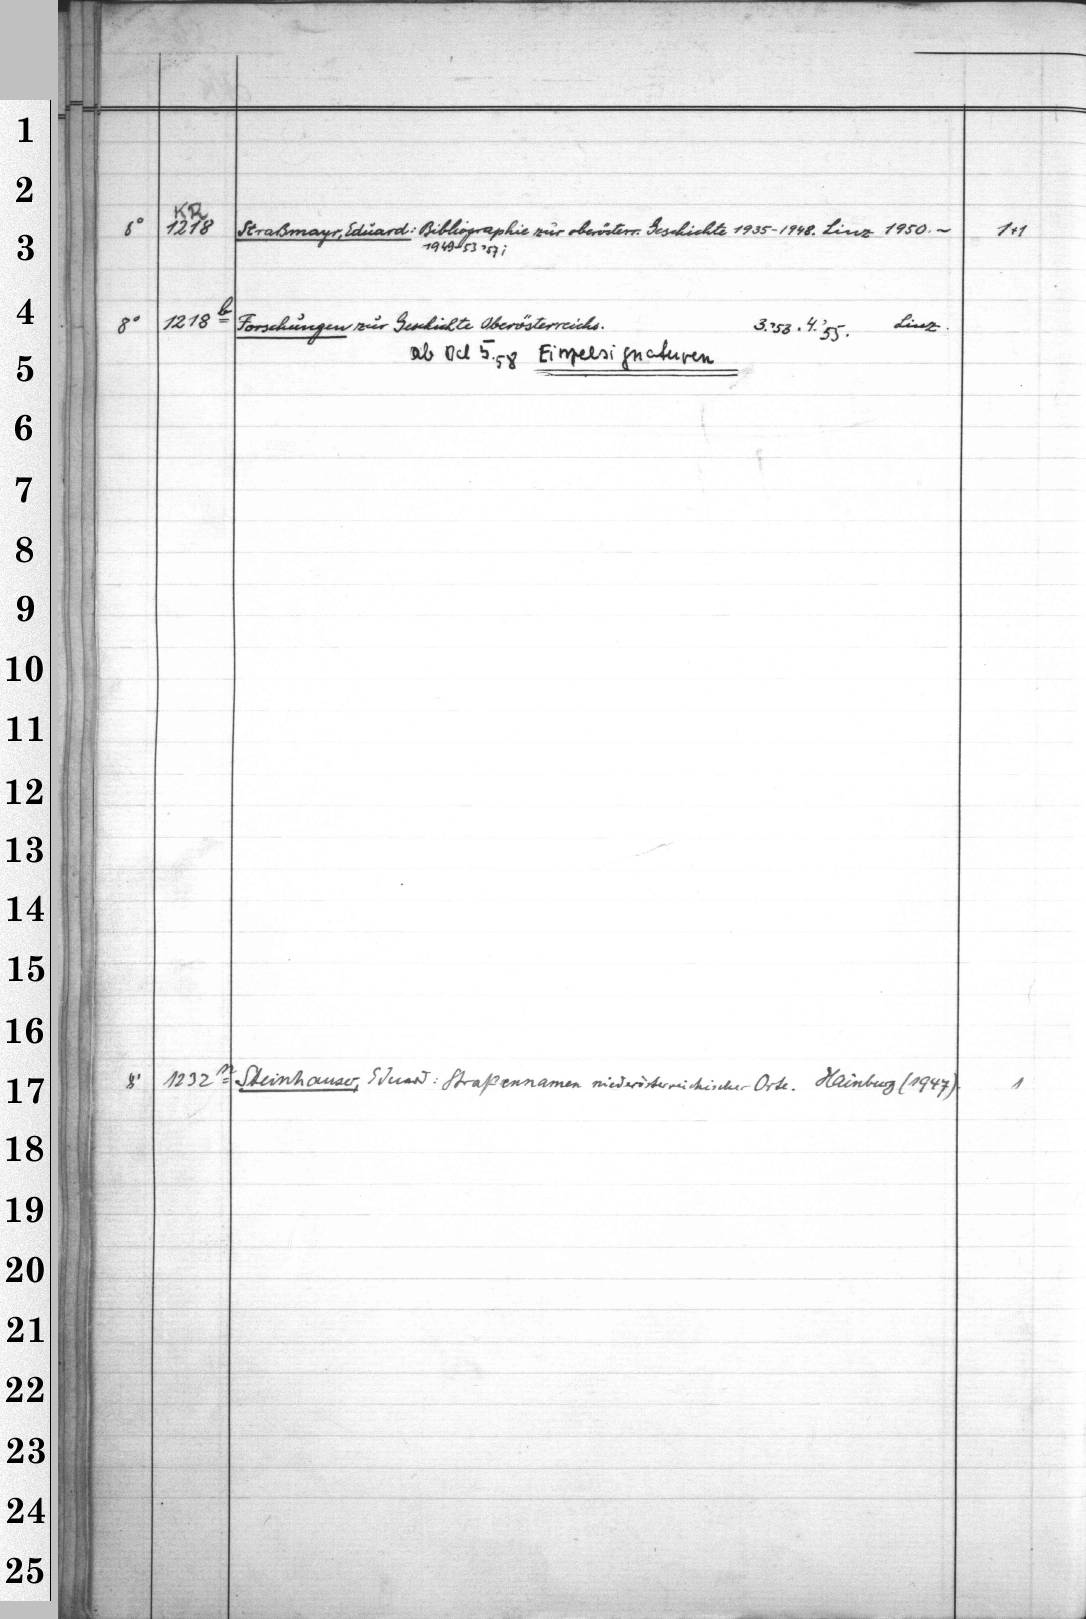 1
2
KR
8° 1218 Straßmayr, Eduard: Bibliographie zur oberösterr. Geschichte 1935-1948. Linz 1950.~ 1+1
3
1949-53 '57;
4
8° 1218 b Forschungen zur Geschichte Oberösterreichs. 3.'53. 4.'55. Linz.
ab Bd 5.58 Einzelsignaturen
5
6
7
8
9
10
11
12
13
14
15
16
8° 1232 n Steinhauser, Eduard: Straßennamen niederösterreichischer Orte. Hainburg (1947). 1
17
18
19
20
21
22
23
24
25